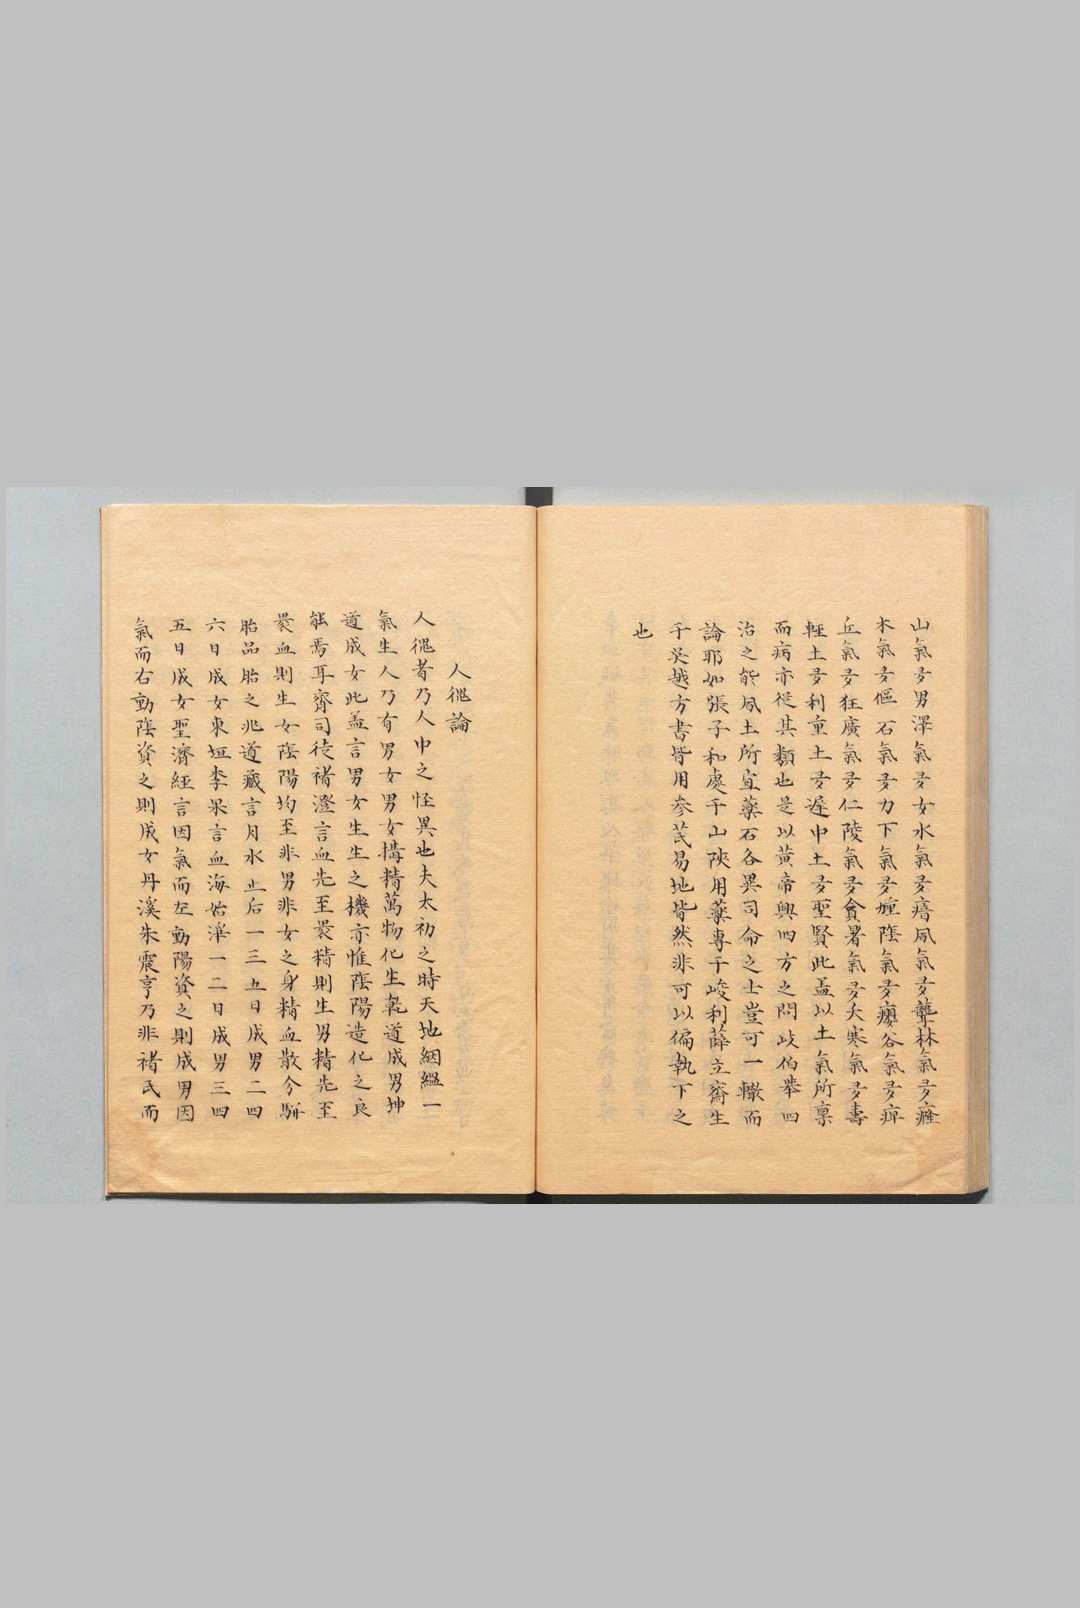 山氣多男澤氣多女水氣多瘖風氣多聾林氣多癃
木氣多傴石氣多力下氣多尰陰氣多癭谷氣多痺
丘氣多狂廣氣多仁陵氣多貪暑氣多夭寒氣多壽
輕土多利重土多遲中土多聖賢此盖以土氣所禀
而病亦從其類也是以黃帝興四方之問歧伯舉四
治之能風土所宜藥石各異司命之士豈可一轍而
論耶如張子和處于山陝用藥專于峻利薛立齋生
于吳越方書皆用參茋易地皆然非可以偏執下之
也
人傀論
人傀者乃人中之怪異也夫太初之時天地絪縕一
氣生人乃有男女男女搆精萬物化生乾道成男坤
道成女此盖言男女生生之機亦惟陰陽造化之良
能焉耳齊司徒褚澄言血先至裹精則生男精先至
裹血則生女陰陽均至非男非女之身精血散分駢
胎品胎之兆道藏言月水止后一三五日成男二四
六日成女東垣李杲言血海始淨一二日成男三四
五日成女聖濟經言因氣而左動陽資之則成男因
氣而右動陰資之則成女丹溪朱震亨乃非褚氏而